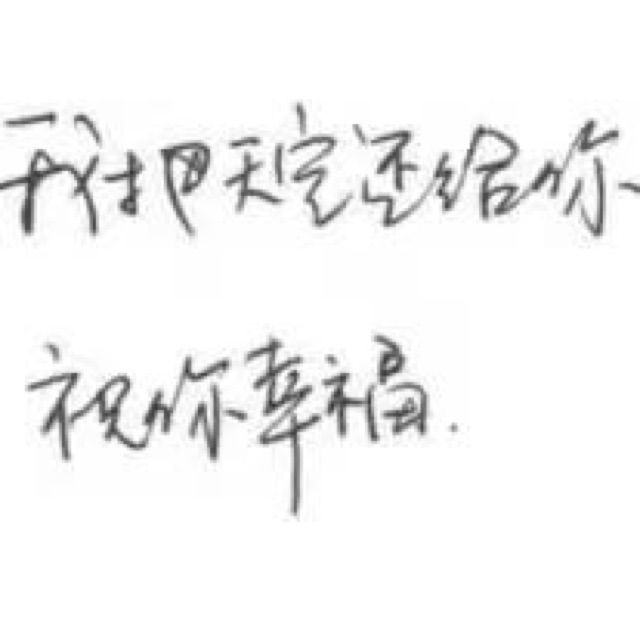 我把天空还给你
祝你幸福.